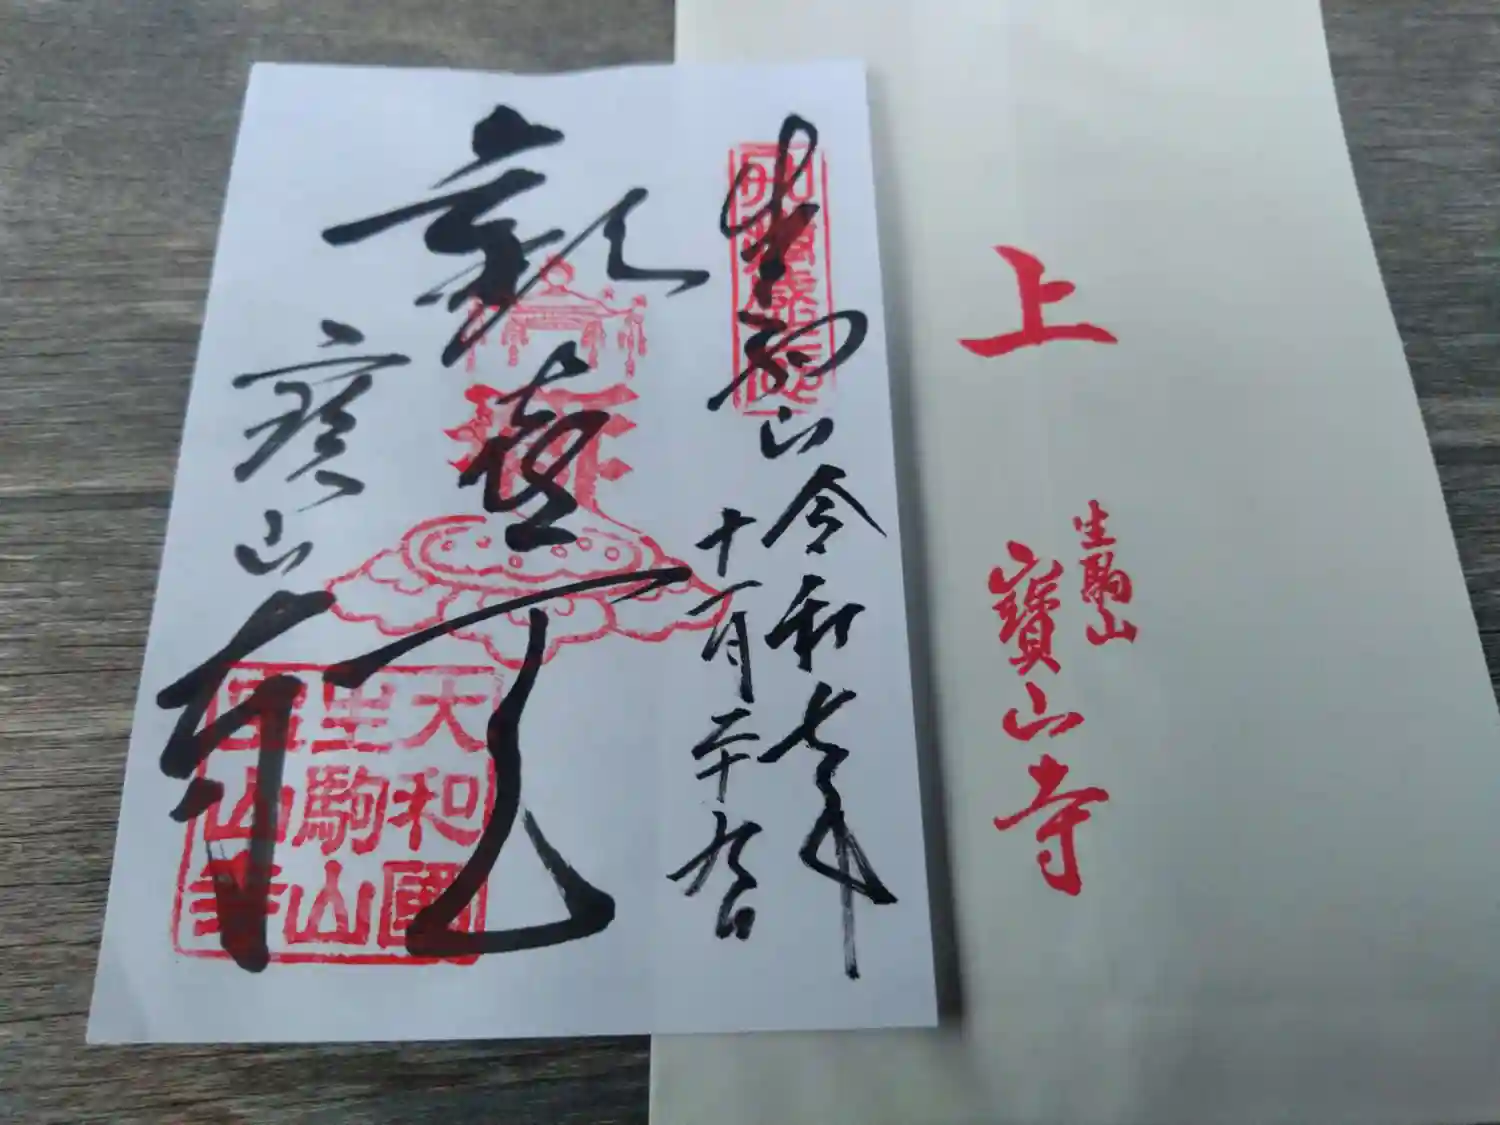 上
生駒山
寳山寺
生駒山
令和七年
十一月二十九日
歓喜天
寳山寺
大和國
生駒山
寳山寺